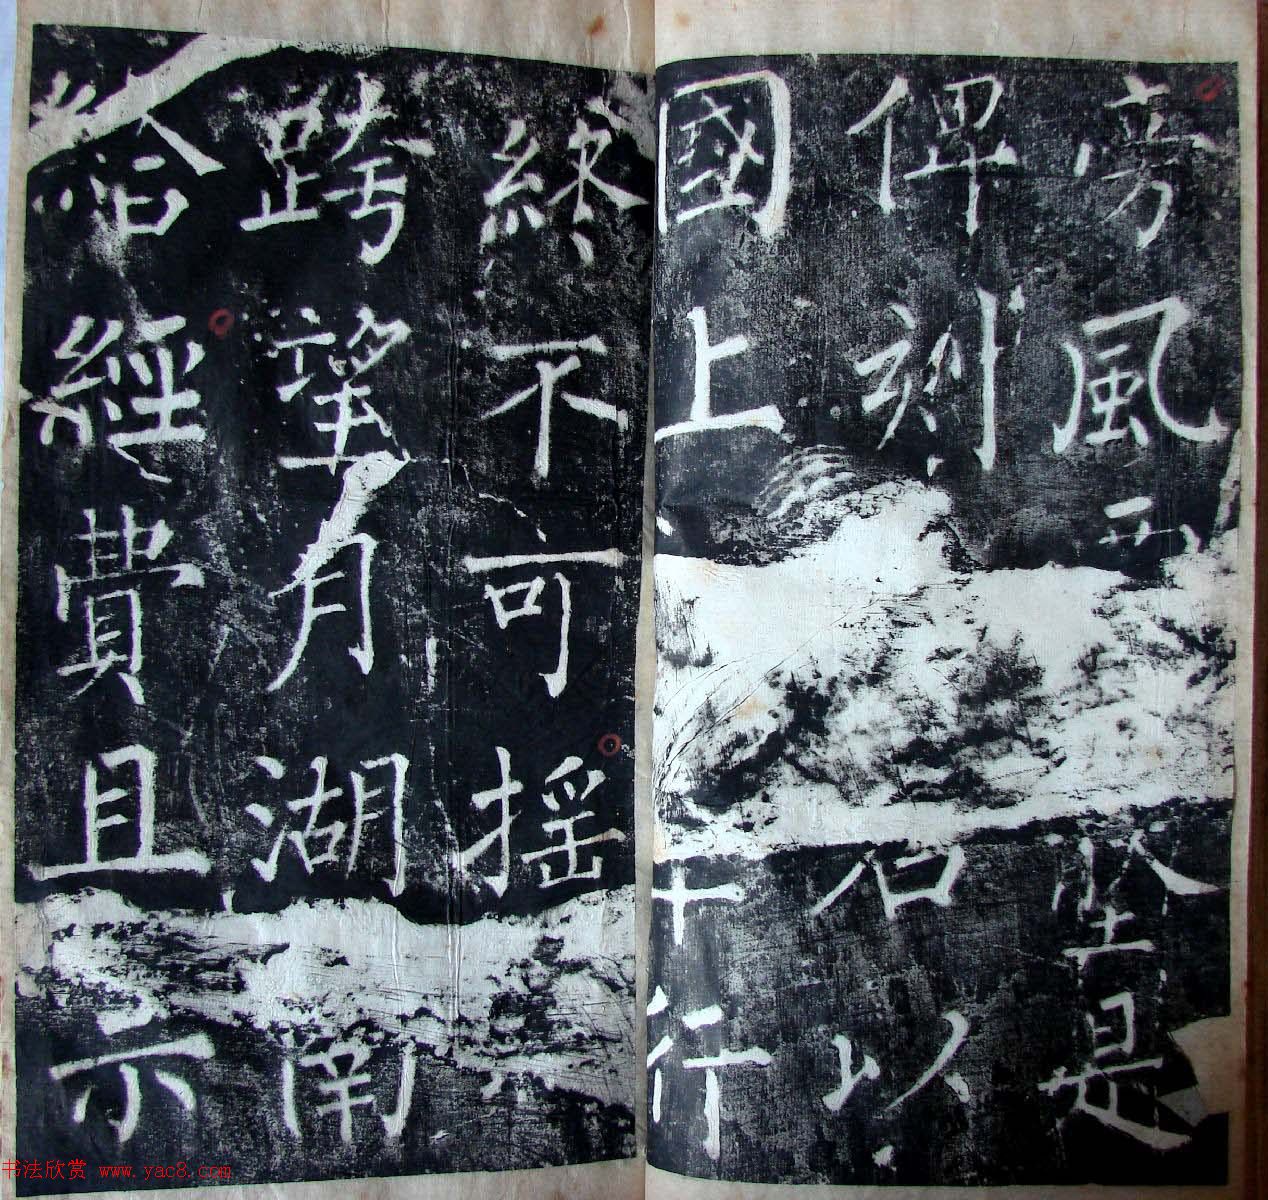 旁風
是
俾刻
石以
國上
十行
終不可揺
跨望月湖南
給經費且示
书法欣赏 www.yac8.com